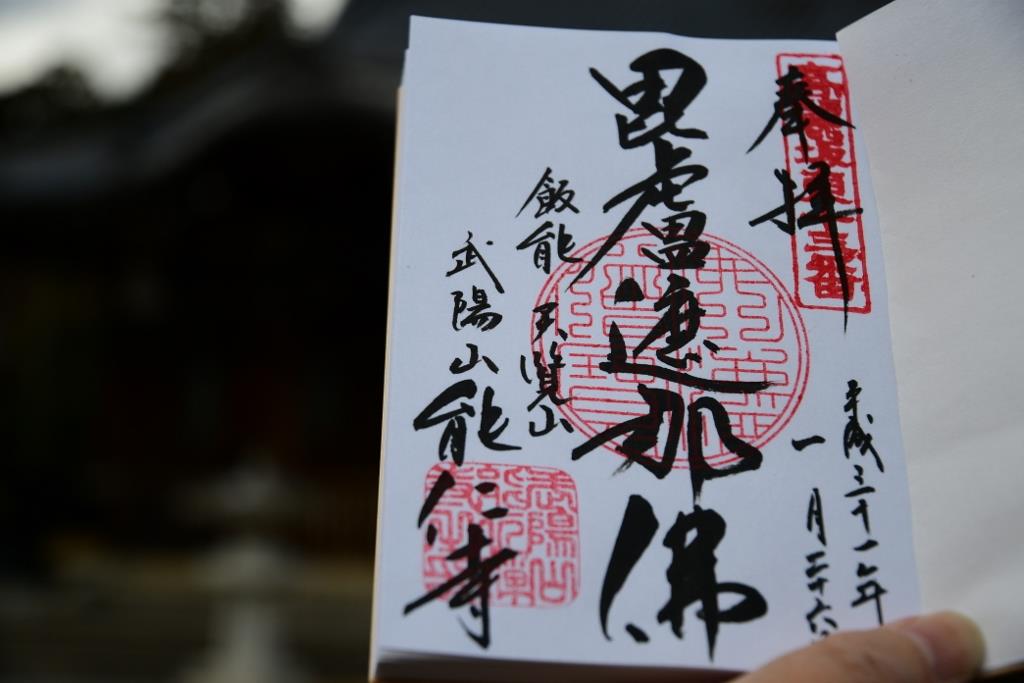 奉拝
平成三十一年
一月二十六
毘盧遮那佛
飯能 天覧山
武陽山能仁寺